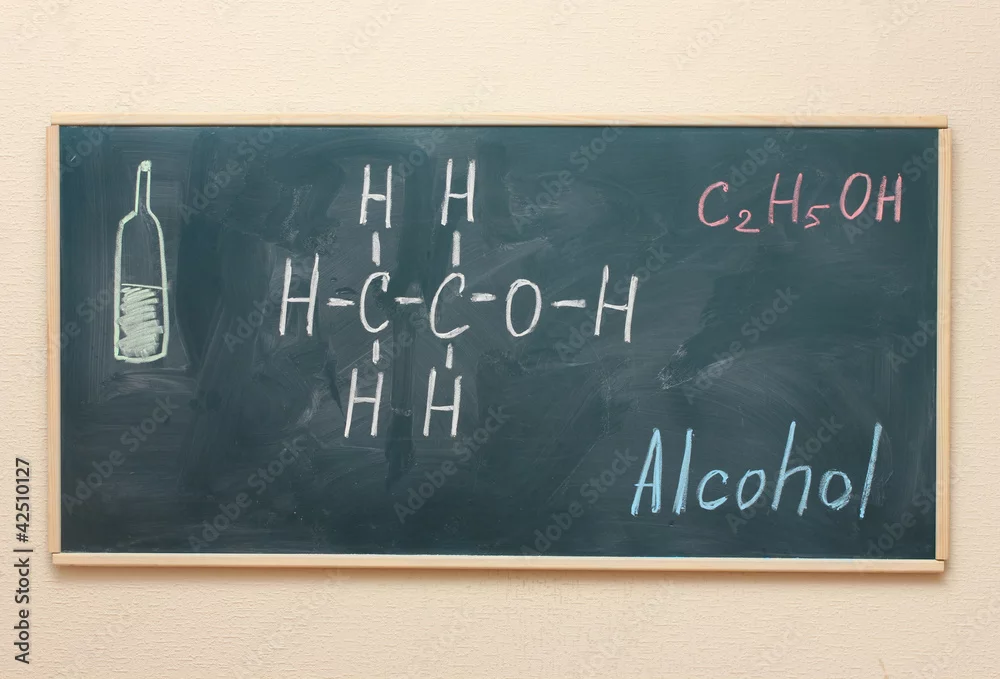 H H
C₂H₅OH
H-C-C-O-H
H H
Alcohol
Adobe Stock | #42510127